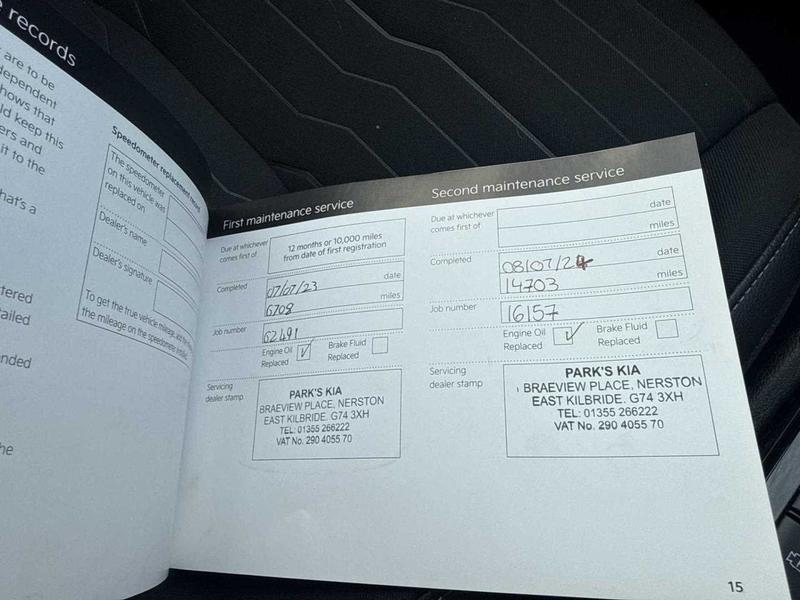 e records
are to be
dependent
hows that
ld keep this
ers and
it to the
hat's a
tered
ailed
nded
he
Speedometer replacement record
The speedometer
on this vehicle was
replaced on
Dealer's name
Dealer's signature
To get the true vehicle mileage, add the
the mileage on the speedometer
First maintenance service
Due at whichever
comes first of
12 months or 10,000 miles
from date of first registration
Completed
07/07/23 date
6708 miles
Job number
62491
Engine Oil
Replaced ✓
Brake Fluid
Replaced
Servicing
dealer stamp
PARK'S KIA
BRAEVIEW PLACE, NERSTON
EAST KILBRIDE. G74 3XH
TEL: 01355 266222
VAT No. 290 4055 70
Second maintenance service
Due at whichever
comes first of
date
miles
Completed
08/07/24 date
14703 miles
Job number
16157
Engine Oil
Replaced ✓
Brake Fluid
Replaced
Servicing
dealer stamp
PARK'S KIA
BRAEVIEW PLACE, NERSTON
EAST KILBRIDE. G74 3XH
TEL: 01355 266222
VAT No. 290 4055 70
15